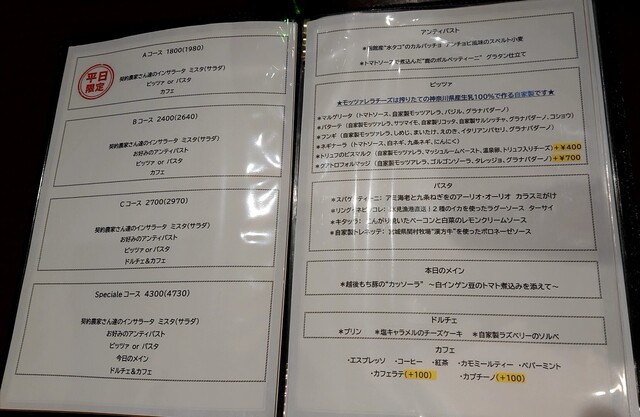 Aコース 1800(1980)
平日
限定
契約農家さん達のインサラータ ミスタ(サラダ)
ピッツァ or パスタ
カフェ
Bコース 2400(2640)
契約農家さん達のインサラータ ミスタ(サラダ)
お好みのアンティパスト
ピッツァ or パスタ
カフェ
Cコース 2700(2970)
契約農家さん達のインサラータ ミスタ(サラダ)
お好みのアンティパスト
ピッツァ or パスタ
ドルチェ&カフェ
Specialeコース 4300(4730)
契約農家さん達のインサラータ ミスタ(サラダ)
お好みのアンティパスト
ピッツァ or パスタ
今日のメイン
ドルチェ&カフェ
アンティパスト
"水タコ"のカルパッチョ アンチョビ風味のスペルト小麦
*トマトソースで煮込んだ"鹿のポルペッティーニ" グラタン仕立て
ピッツァ
★モッツァレラチーズは搾りたての神奈川県産生乳100%で作る自家製です★
*マルゲリータ (トマトソース、自家製モッツァレラ、バジル、グラナパダーノ)
*パターテ (自家製モッツァレラ、サツマイモ、自家製リコッタ、自家製サルシッチャ、グラナパダーノ、コショウ)
*フンギ (自家製モッツァレラ、しめじ、まいたけ、えのき、イタリアンパセリ、グラナパダーノ)
*ネギナーラ (トマトソース、白ネギ、九条ネギ、にんにく)
*トリュフのビスマルク (自家製モッツァレラ、マッシュルームペースト、温泉卵、トリュフ入りチーズ)+¥400
*クアトロフォルマッジ (自家製モッツァレラ、ゴルゴンゾーラ、タレッジョ、グラナパダーノ)+¥700
パスタ
*スパゲッティーニ: アミ海老と九条ねぎをのアーリオ・オーリオ カラスミがけ
*リングイネ 氷見漁港直送!2種のイカを使ったラグーソース ターサイ
*キタッラ: こんがり焼いたベーコンと白菜のレモンクリームソース
*自家製トレネッテ: 宮城県関村牧場"漢方牛"を使ったボロネーゼソース
本日のメイン
*越後もち豚の"カッソーラ" ～白インゲン豆のトマト煮込みを添えて～
ドルチェ
*プリン *塩キャラメルのチーズケーキ *自家製ラズベリーのソルベ
カフェ
・エスプレッソ ・コーヒー ・紅茶 ・カモミールティー ・ペパーミント
・カフェラテ(+100) ・カプチーノ(+100)